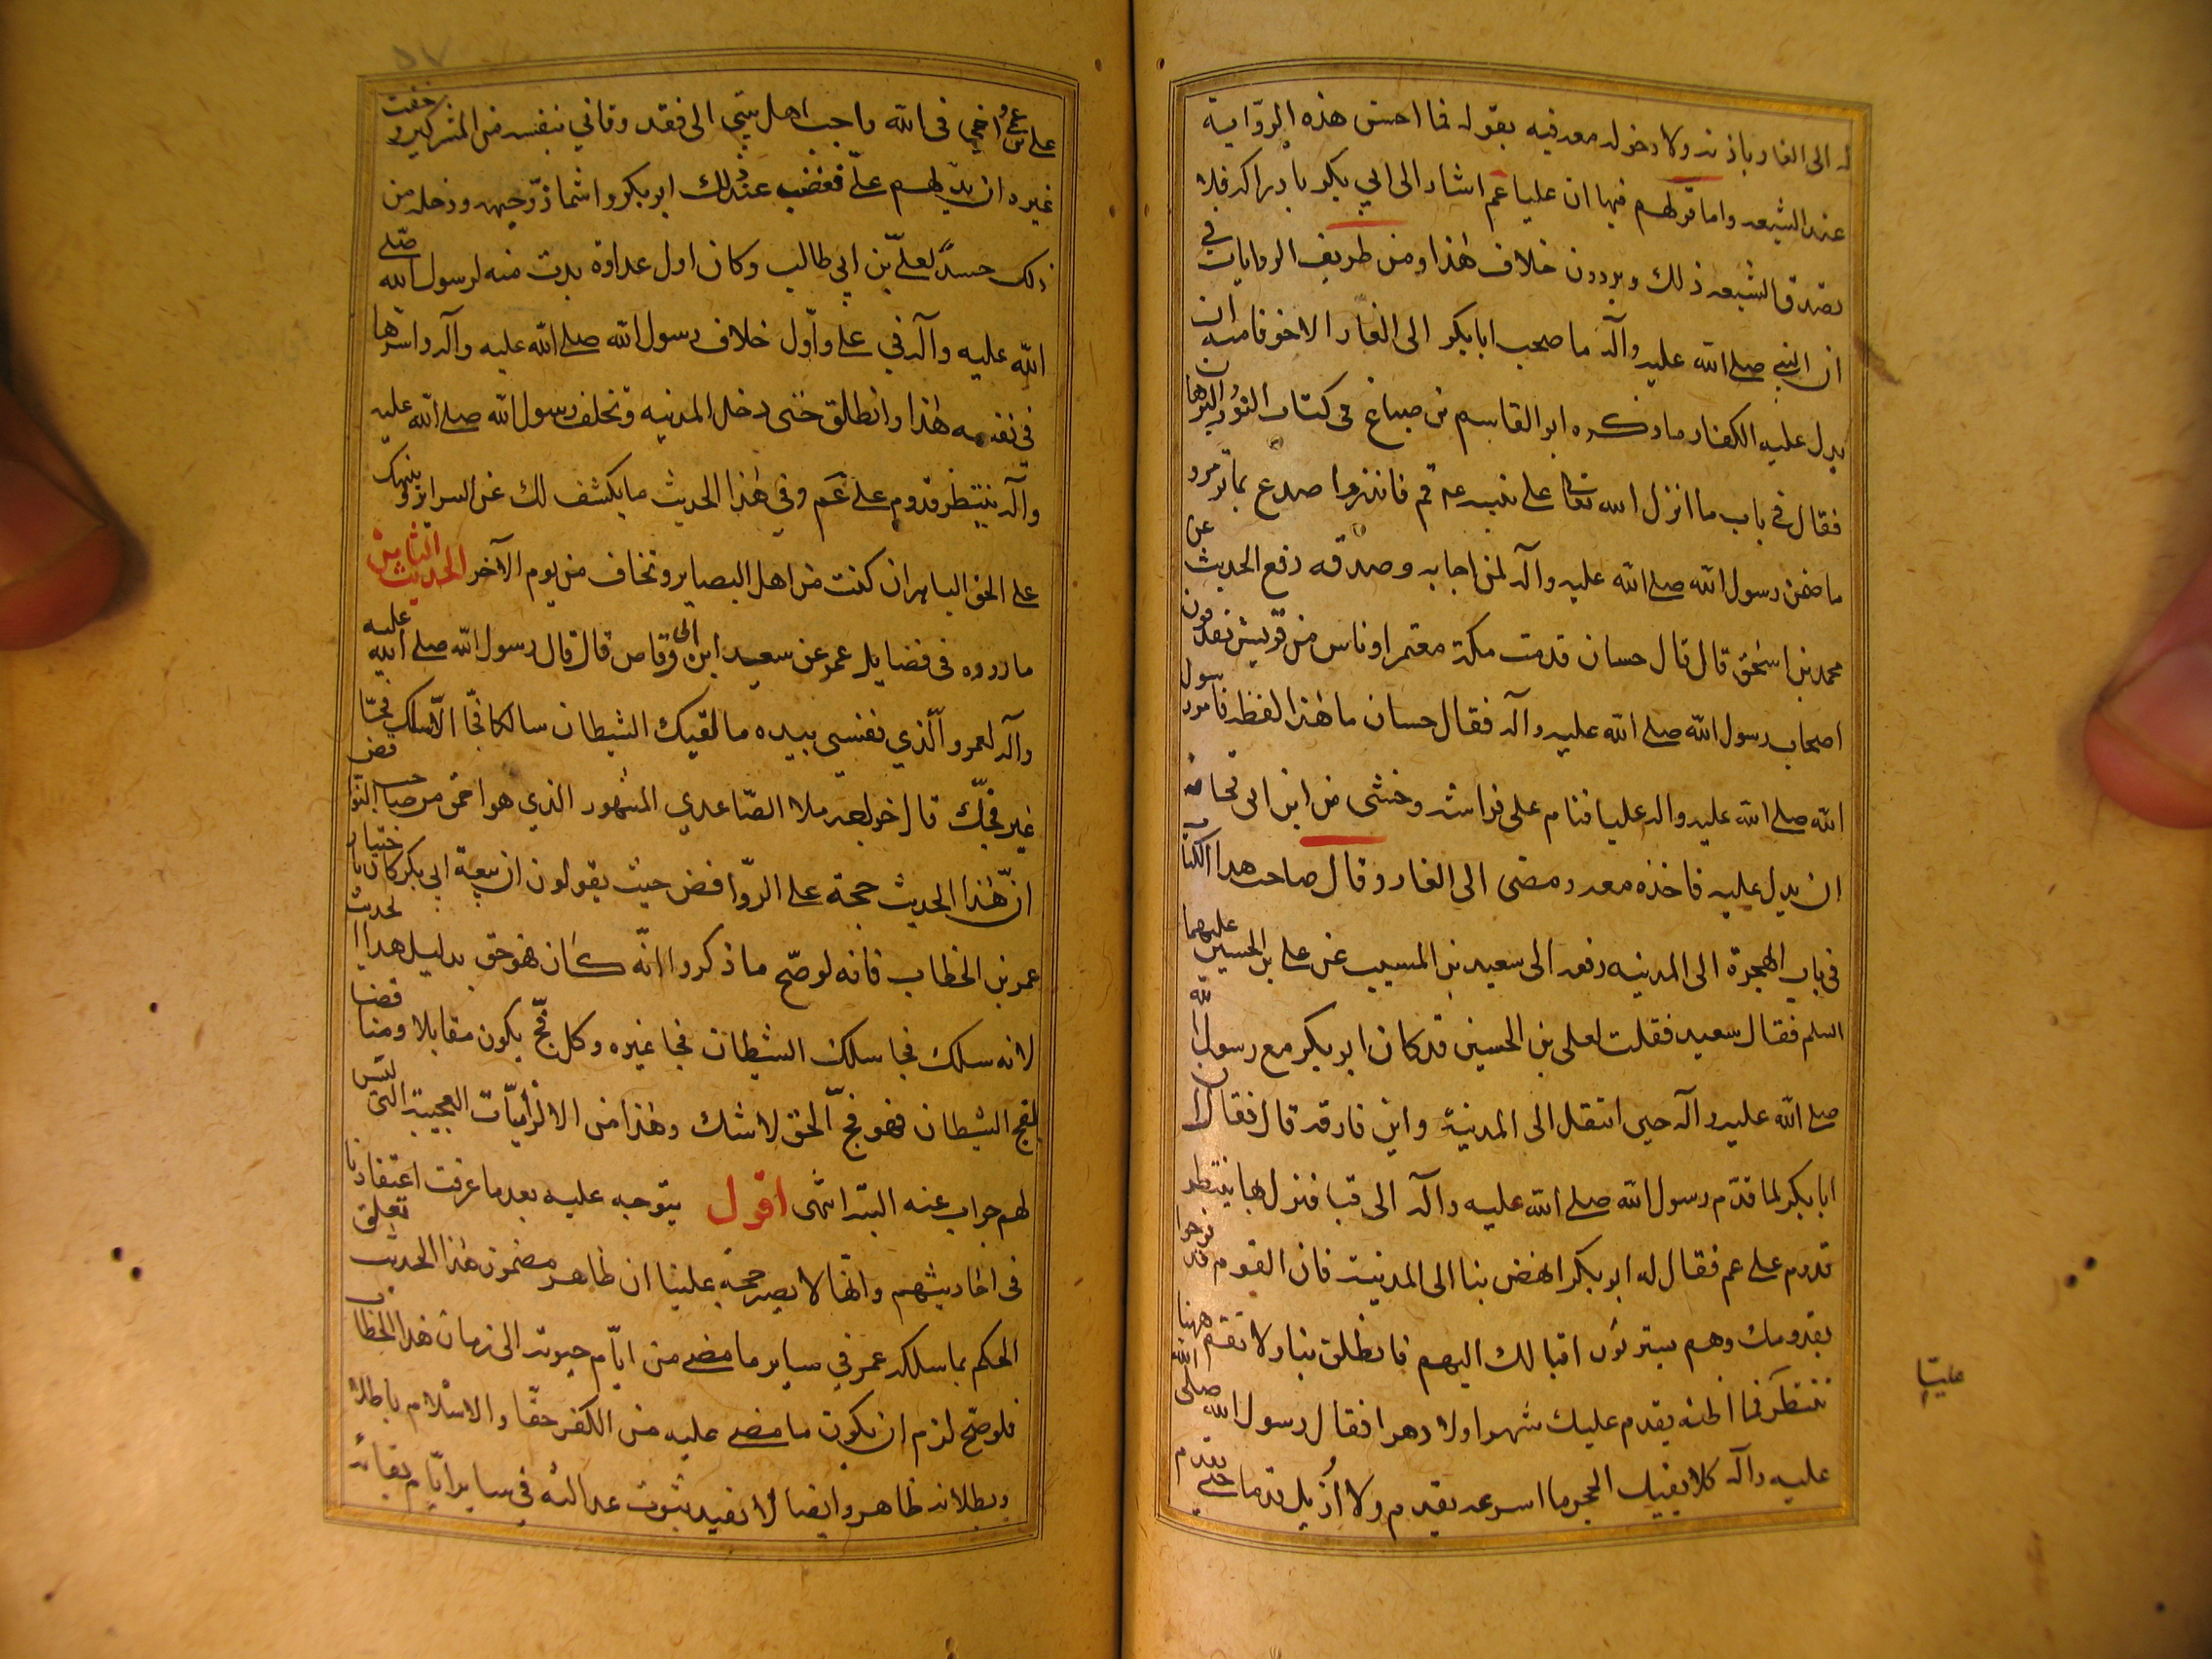 له الى الغار باذنه ولا دخوله معه فيه بقوله فما احسن هذه الرواية
عند الشيعه واما قولهم فيها ان عليا عم اشار الى ابي بكر بادراكه فلا
تصدق الشيعه ذلك ويروون خلاف هذا ومن طريف الروايات في
ان النبي صلى الله عليه وآله ما صحب ابا بكر الى الغار الا خوفا منه ان
يدل عليه الكفار ما ذكره ابو القاسم بن صباغ في كتاب النور والبرهان
فقال في باب ما انزل الله تعالى على نبيه عم قم فانذر واصدع بما تؤمر و
ما ضمن رسول الله صلى الله عليه وآله لمن اجابه وصدقه رفع الحديث عن
محمد بن اسحق قال قال حسان قدمت مكة معتمرا وناس من قريش يقذفون
اصحاب رسول الله صلى الله عليه وآله فقال حسان ما هذا لفظه فامر رسول
الله صلى الله عليه واله عليا فنام على فراشه وخشى من ابن ابى قحافه
ان يدل عليه فاخذه معه ومضى الى الغار وقال صاحب هذا الكتاب
في باب الهجرة الى المدينه رفعه الى سعيد بن المسيب عن على بن الحسين عليهما
السلم فقال سعيد فقلت لعلى بن الحسين قد كان ابو بكر مع رسول الله
صلى الله عليه وآله حين انتقل الى المدينة واين فارقه قال فقال ان
ابا بكر لما قدم رسول الله صلى الله عليه وآله الى قبا فنزل بها ينتظر
قدوم على عم فقال له ابو بكر انهض بنا الى المدينة فان القوم قد فرحوا
بقدومك وهم يستريثون اقبالك اليهم فانطلق بنا ولا تقم ههنا
تنتظر فما اظنه يقدم عليك شهرا ولا دهرا فقال رسول الله صلى الله
عليه وآله كلا ما اسرعه يقدم ولا ازيل قدما حتى يقدم
عليّا
على بن عمى واخي في الله واحب اهل بيتي الى فقد وقاني بنفسه من المشركين وخفت
غيره ان يدلهم على فغضب عند ذلك ابو بكر واشماز وجهه ودخله من
ذلك حسد لعلي بن ابي طالب وكان اول عداوة بدت منه لرسول الله صلى
الله عليه وآله في على واول خلاف رسول الله صلى الله عليه وآله واسرها
في نفسه هذا وانطلق حتى دخل المدينه وتخلف رسول الله صلى الله عليه
وآله ينتظر قدوم على عم وفي هذا الحديث ما يكشف لك عن السرائر وينبهك
على الحق الباهر ان كنت من اهل البصاير وتخاف من يوم الآخر الحديث الثامن
ما رووه فى فضايل عمر عن سعيد ابن ابى وقاص قال قال رسول الله صلى الله عليه
وآله لعمر والذي نفسي بيده ما لقيك الشيطان سالكا فجا الا سلك فجا
غير فجك قال خواجه ملا الصاعدي المشهور الذي هو احمق من صاحب النواقض
ان هذا الحديث حجة على الروافض حيث يقولون ان بيعة ابي بكر كان باختيار
عمر بن الخطاب فانه لو صح ما ذكروا انه كان فهو حق بدليل هذا الحديث
لانه سلك فجا سلك الشيطان فجا غيره وكل فج يكون مقابلا ومناقضا
لفج الشيطان فهو فج الحق لا شك وهذا من الالزاميات العجيبة التي ليس
لهم جواب عنه البتة انتهى اقول يتوجه عليه بعد ما عرفت اعتقادنا
فى احاديثهم وانها لا يصير حجة علينا ان ظاهر مضمون هذا الحديث تعلق
الحكم بما سلكه عمر في ساير ما مضى من ايام حيوته الى زمان هذا الخطاب
فلو صح لزم ان يكون ما مضى عليه من الكفر حقا والاسلام باطلا
وبطلانه ظاهر وايضا لا تفيد ثبوت عدالته في ساير ايام بقائه